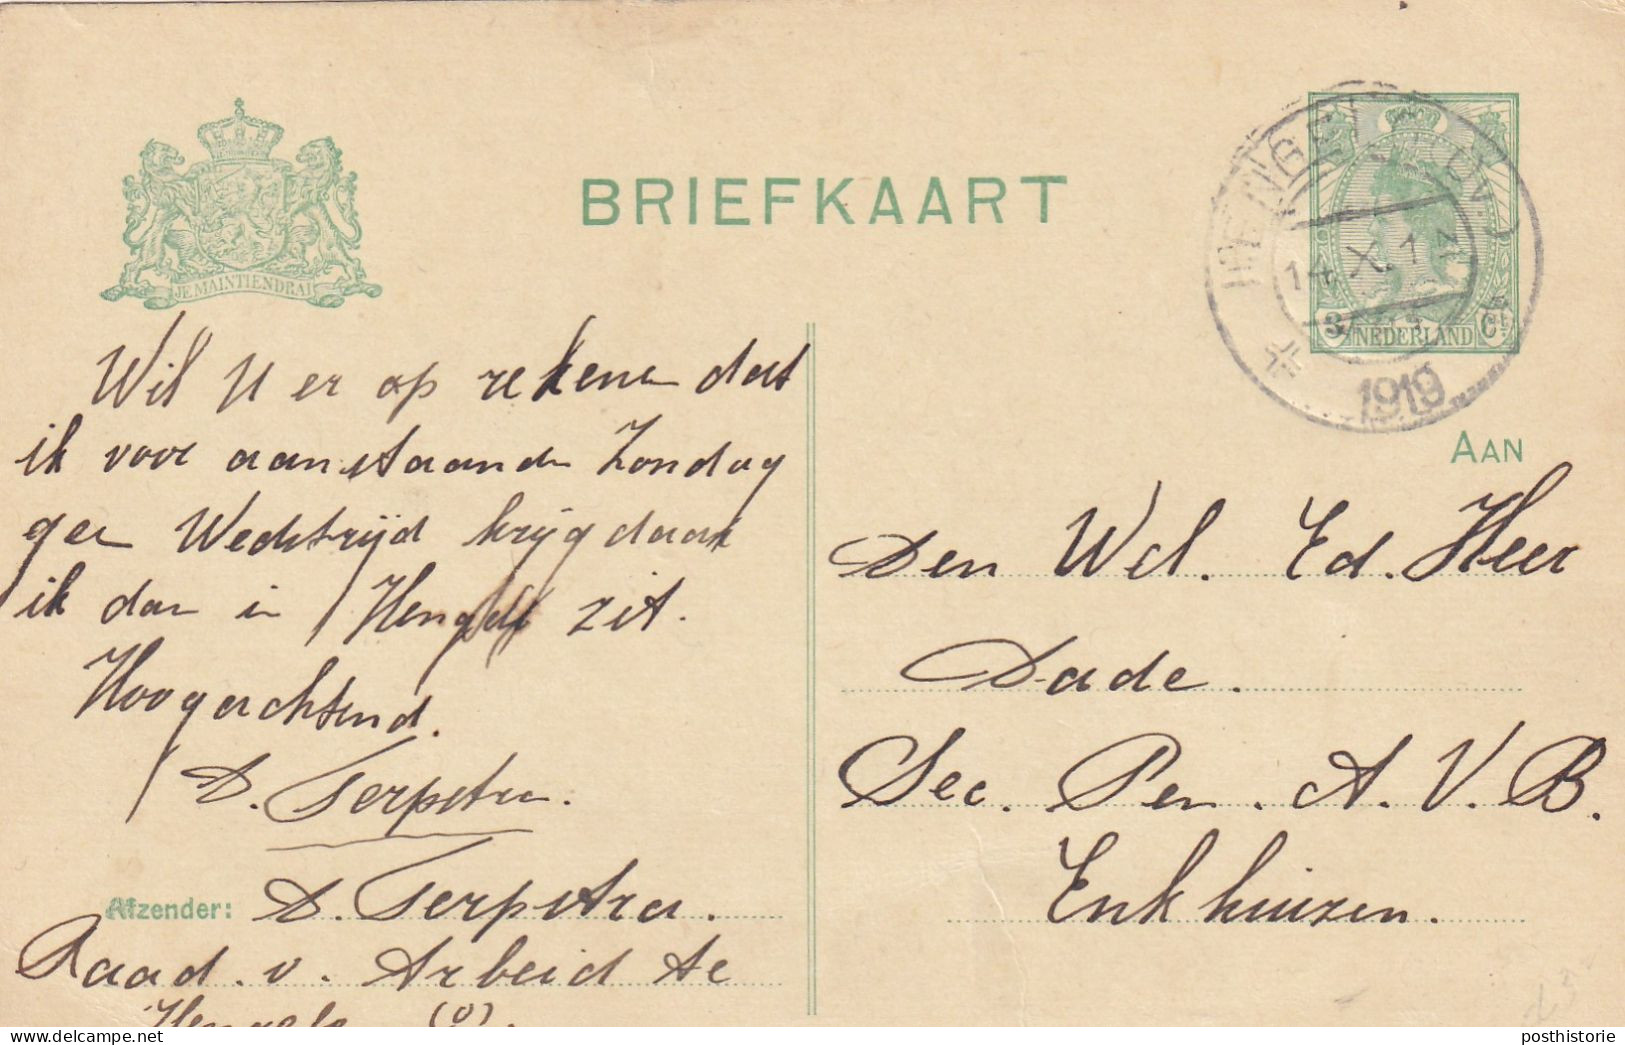 BRIEFKAART
JE MAINTIENDRAI
HENGELO (OV.)
14 X 1
1919
3 NEDERLAND Ct
AAN
Wil U er op rekenen dat
ik voor aanstaande Zondag
geen Wedstrijd krijg daar
ik dan in Hengelo zit.
Hoogachtend.
D. Terpstra.
Afzender: D. Terpstra.
Raad. v. Arbeid te
Hengelo (O).
Den Wel. Ed. Heer
Dade.
Sec. Pen. A. V. B.
Enkhuizen.
posthistorie
delcampe.net